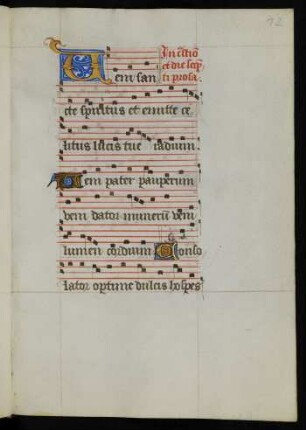 12
In
et die
ti prosa.
Veni san
cte spiritus et emitte ce
litus lucis tue radium.
Veni pater pauperum
veni dator munerū veni
lumen cordium Conso
lator optime dulcis hospes